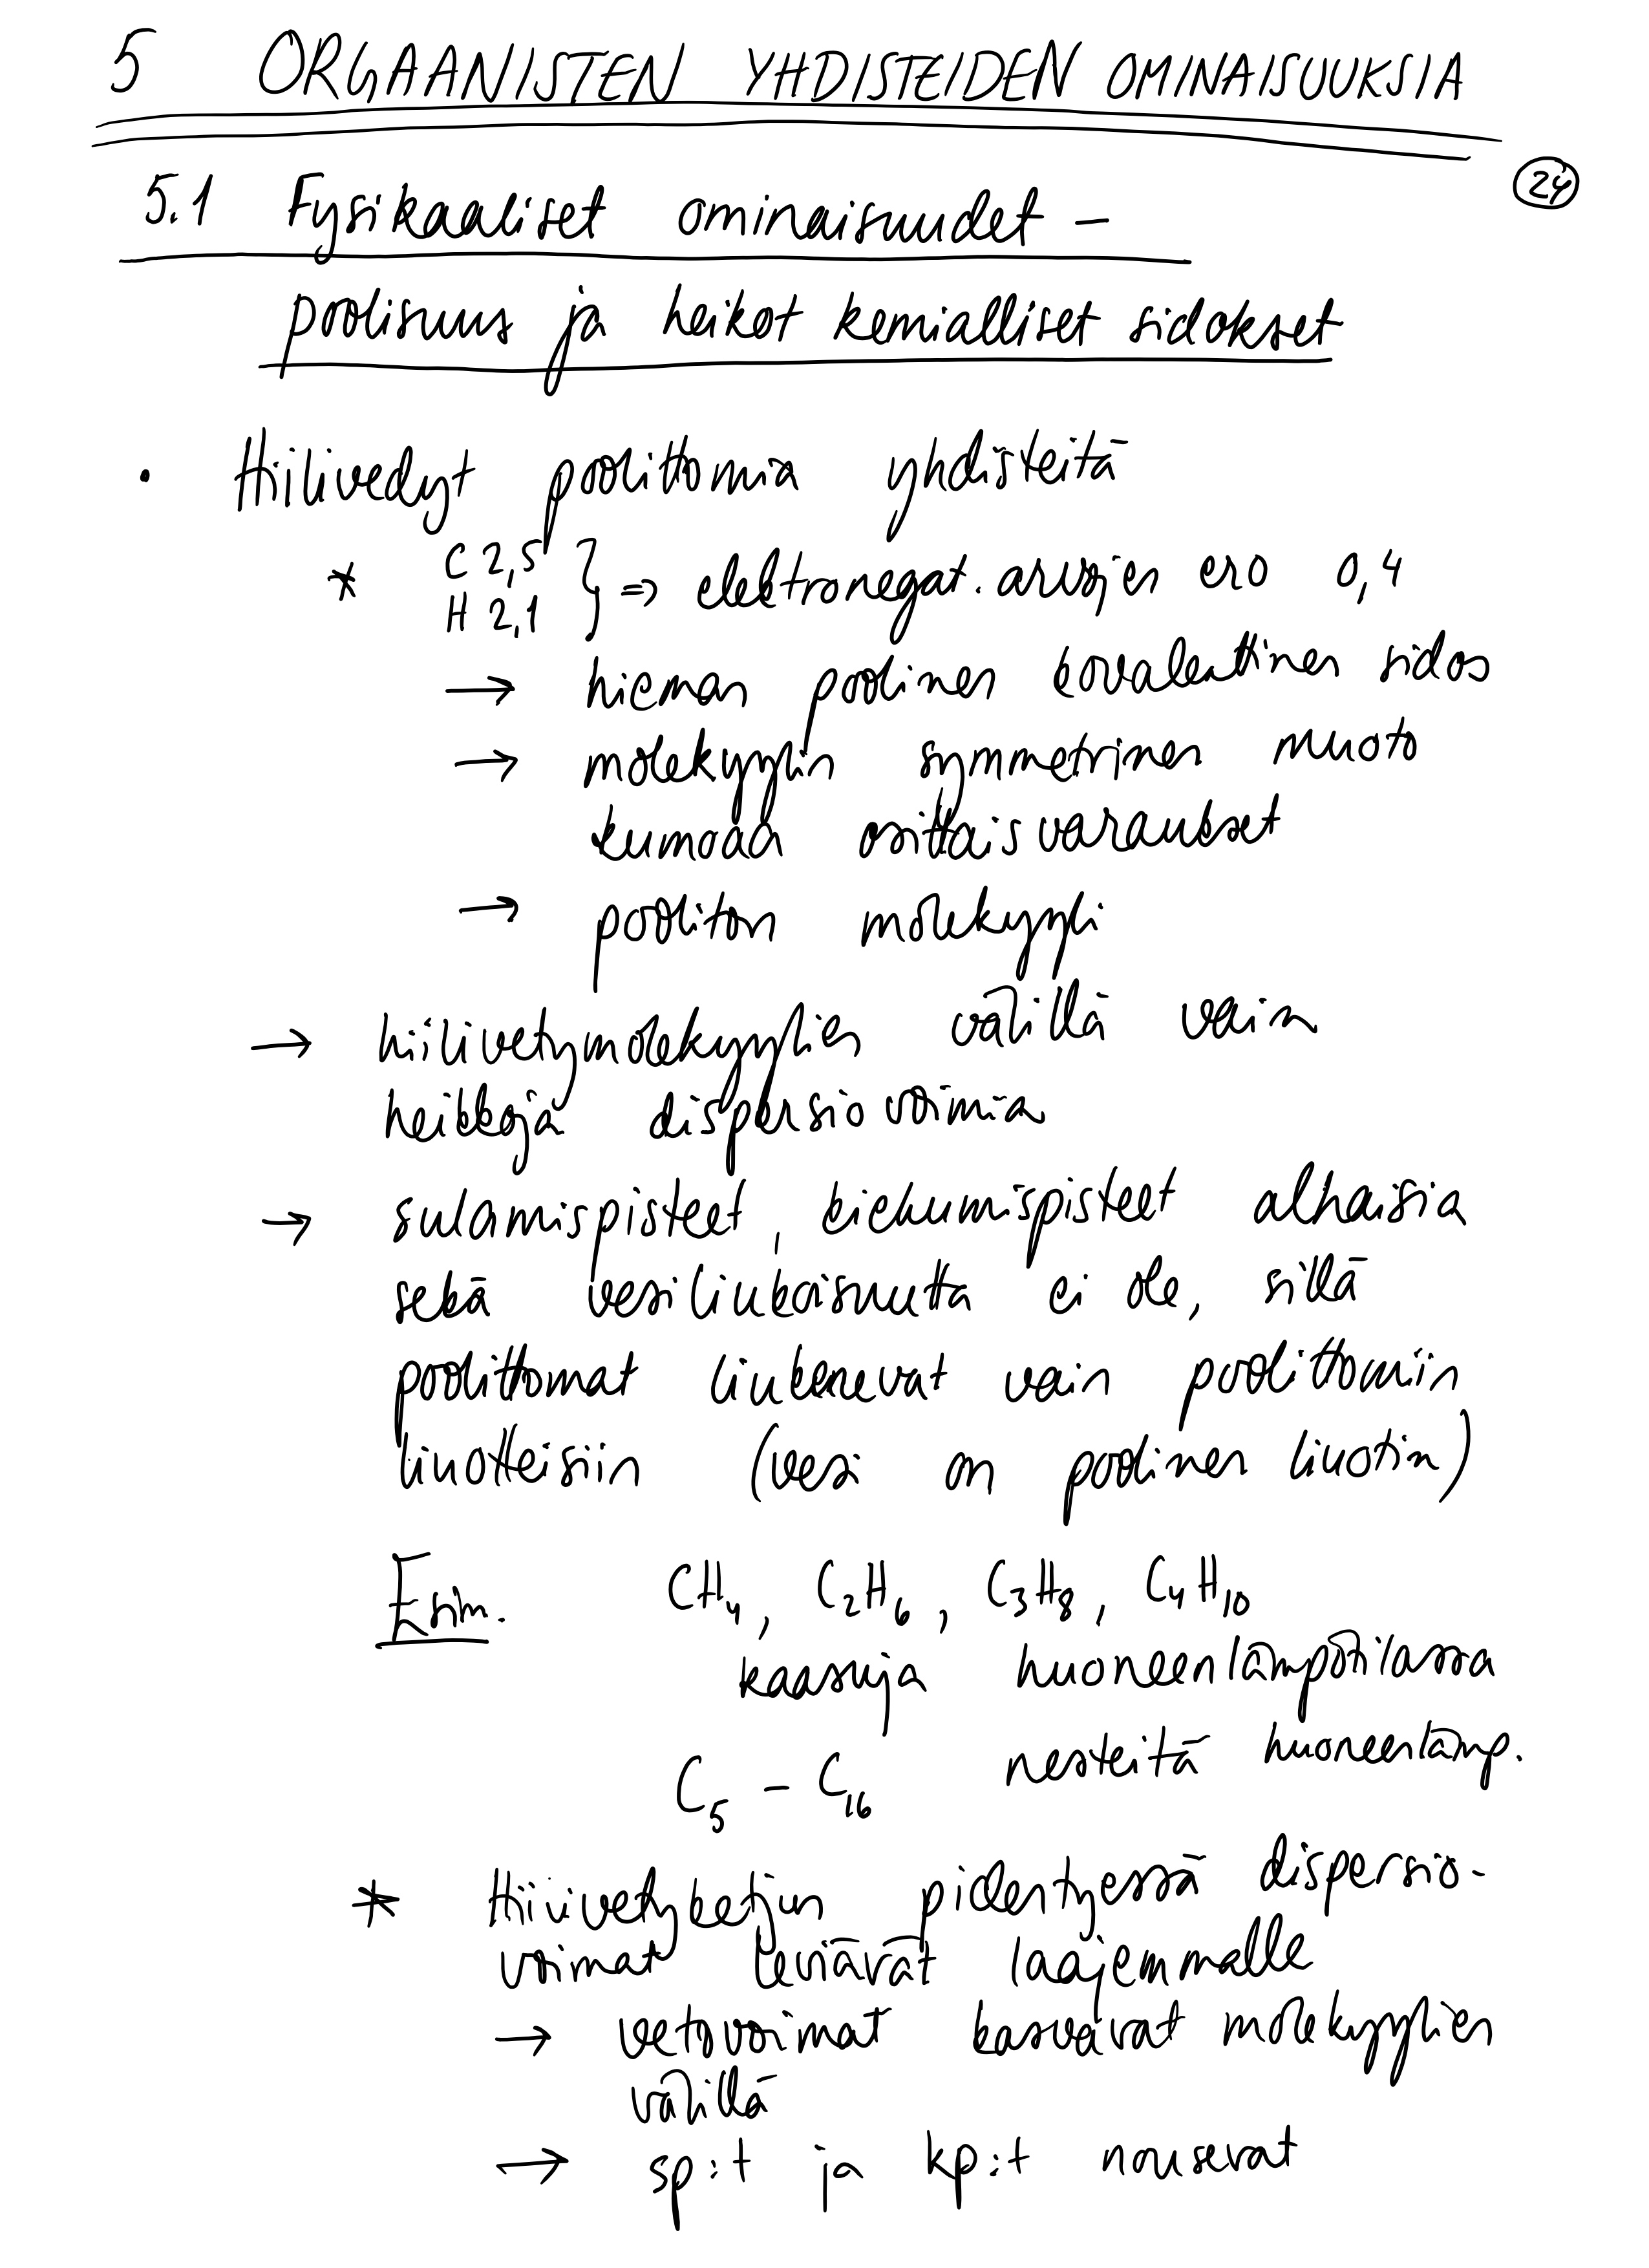 5 ORGAANISTEN YHDISTEIDEN OMINAISUUKSIA
24
5.1 Fysikaaliset ominaisuudet –
poolisuus ja heikot kemialliset sidokset
• Hiilivedyt poolittomia yhdisteitä
* C 2,5
H 2,1 } => elektronegat. arvojen ero 0,4
→ hieman poolinen kovalenttinen sidos
→ molekyylin symmetrinen muoto
kumoaa osittaisvaraukset
→ pooliton molekyyli
→ hiilivetymolekyylien välillä vain
heikkoja dispersiovoimia
→ sulamispisteet, kiehumispisteet alhaisia
sekä vesiliukoisuutta ei ole, sillä
poolittomat liukenevat vain poolittomiin
liuotteisiin (vesi on poolinen liuotin)
Esim. CH₄, C₂H₆, C₃H₈, C₄H₁₀
kaasuja huoneenlämpötilassa
C₅ – C₁₆ nesteitä huoneenlämp.
* Hiilivetyketjun pidentyessä dispersio-
voimat leviävät laajemmalle
→ vetovoimat kasvavat molekyylien
välillä
→ sp:t ja kp:t nousevat